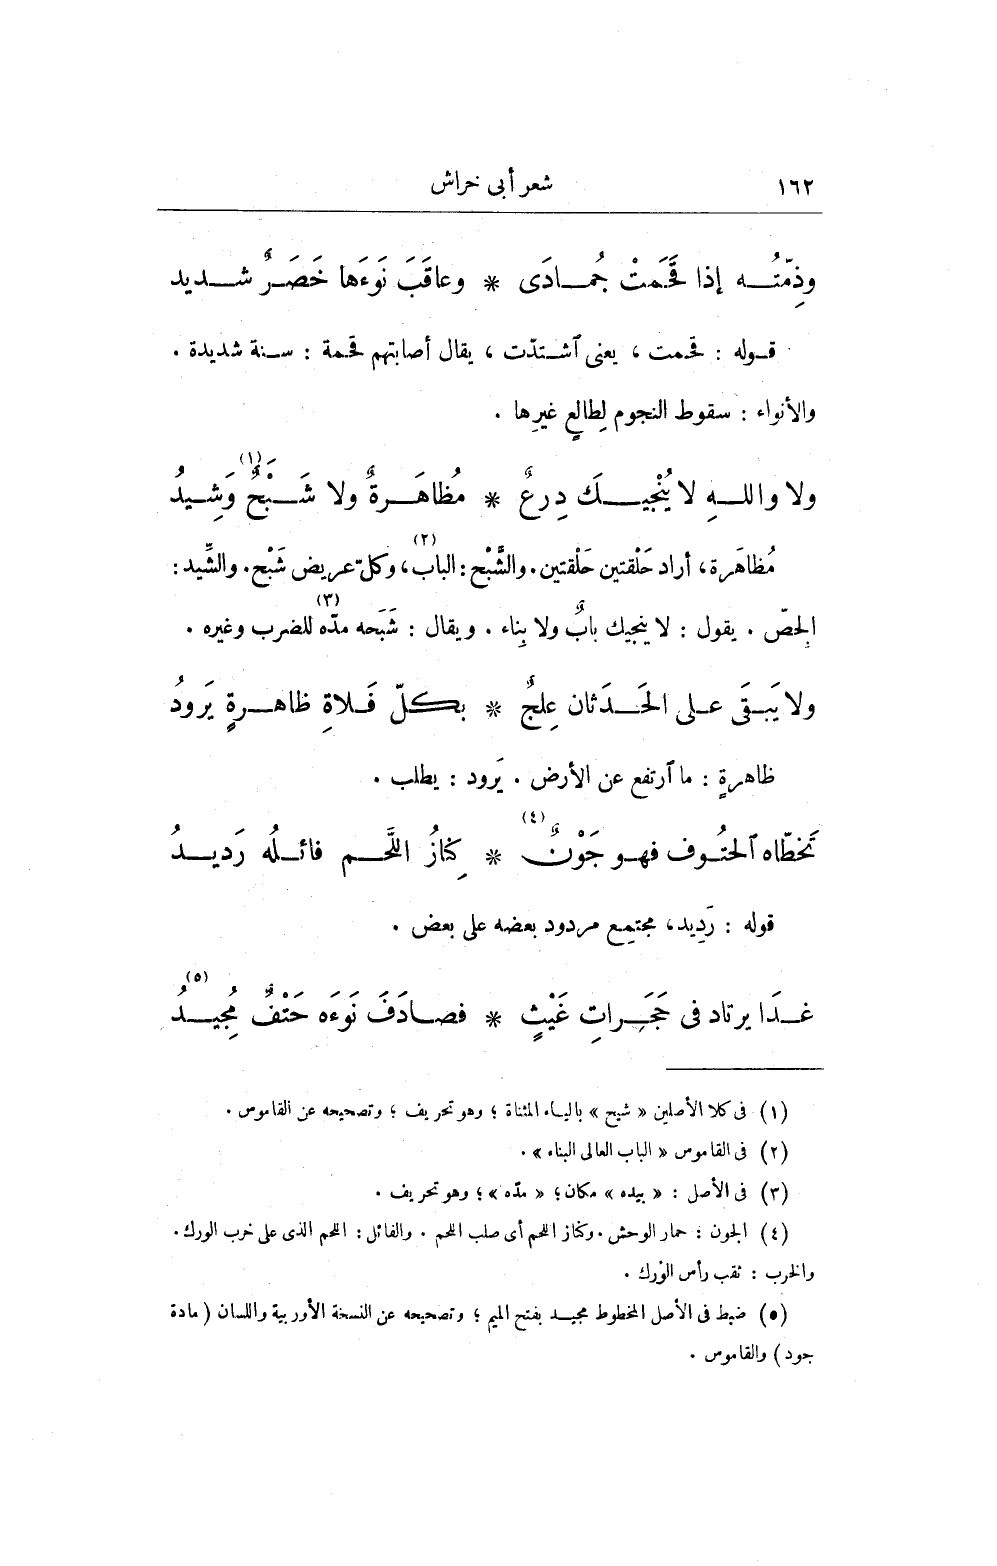 ١٦٢ شعر أبى خراش
وذِمّتُه إذا قَحَمَتْ جُمادَى * وعاقَبَ نَوءَها خَصَرٌ شديد
قوله : قحمت ، يعنى ٱشتدّت ، يقال أصابتهم قحمة : سنة شديدة .
والأنواء : سقوط النجوم لِطالِعٍ غيرِها .
ولا واللهِ لا يُنْجِيكَ دِرعٌ * مُظاهَرةٌ ولا شَبْحٌ وَشِيدُ (١)
مُظاهَرة، أراد حَلْقتين حَلْقتين. والشَّبْح : الباب (٢)، وكلّ عريض شَبْح. والشِّيد :
الجصّ . يقول : لا ينجيك بابٌ ولا بِناء . ويقال : شَبَحه مدّه (٣) للضرب وغيره .
ولا يَبقَى على الحَدَثان عِلجٌ * بكلّ فَلاةِ ظاهرةٍ يَرودُ
ظاهرةٍ : ما ٱرتفع عن الأرض . يَرود : يطلب .
تَخطّاه ٱلحتُوف فهو جَوْنٌ (٤) * كِنازُ اللَّحم فائلُه رَديدُ
قوله : رَدِيد، مجتمِع مردود بعضه على بعض .
غدَا يرتاد فى حَجَراتِ غَيْثٍ * فصادَفَ نَوءَه حَتْفٌ مُجِيدُ (٥)
(١) فى كلا الأصلين « شيح » بالياء المثناة ؛ وهو تحريف ؛ وتصحيحه عن القاموس .
(٢) فى القاموس « الباب العالى البناء » .
(٣) فى الأصل : « بيده » مكان ؛ « مدّه » ؛ وهو تحريف .
(٤) الجون : حمار الوحش . وكناز اللحم أى صلب اللحم . والفائل : اللحم الذى على خرب الورك .
والخرب : ثقب رأس الوَرك .
(٥) ضبط فى الأصل المخطوط مجيد بفتح الميم ؛ وتصحيحه عن النسخة الأوربية واللسان ( مادة
جود ) والقاموس .